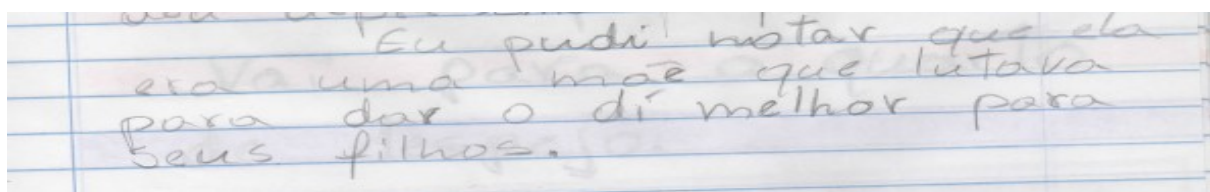 Eu pudi notar que ela
era uma mãe que lutava
para dar o di melhor para
seus filhos.